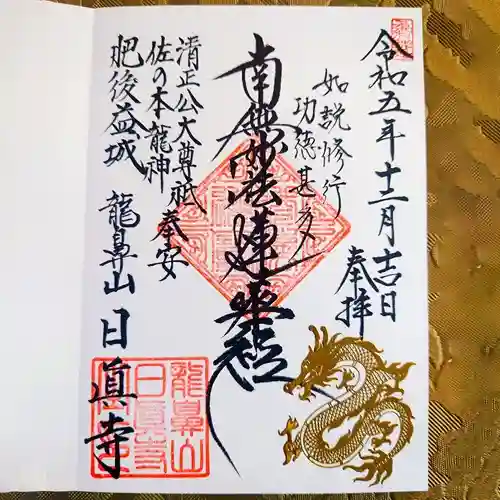 令和五年十二月吉日
奉拝
如説修行
功徳甚多
南無妙法蓮華経
清正公大尊祇奉安
佐の本龍神
肥後益城
龍鼻山日眞寺
龍鼻山
日眞寺